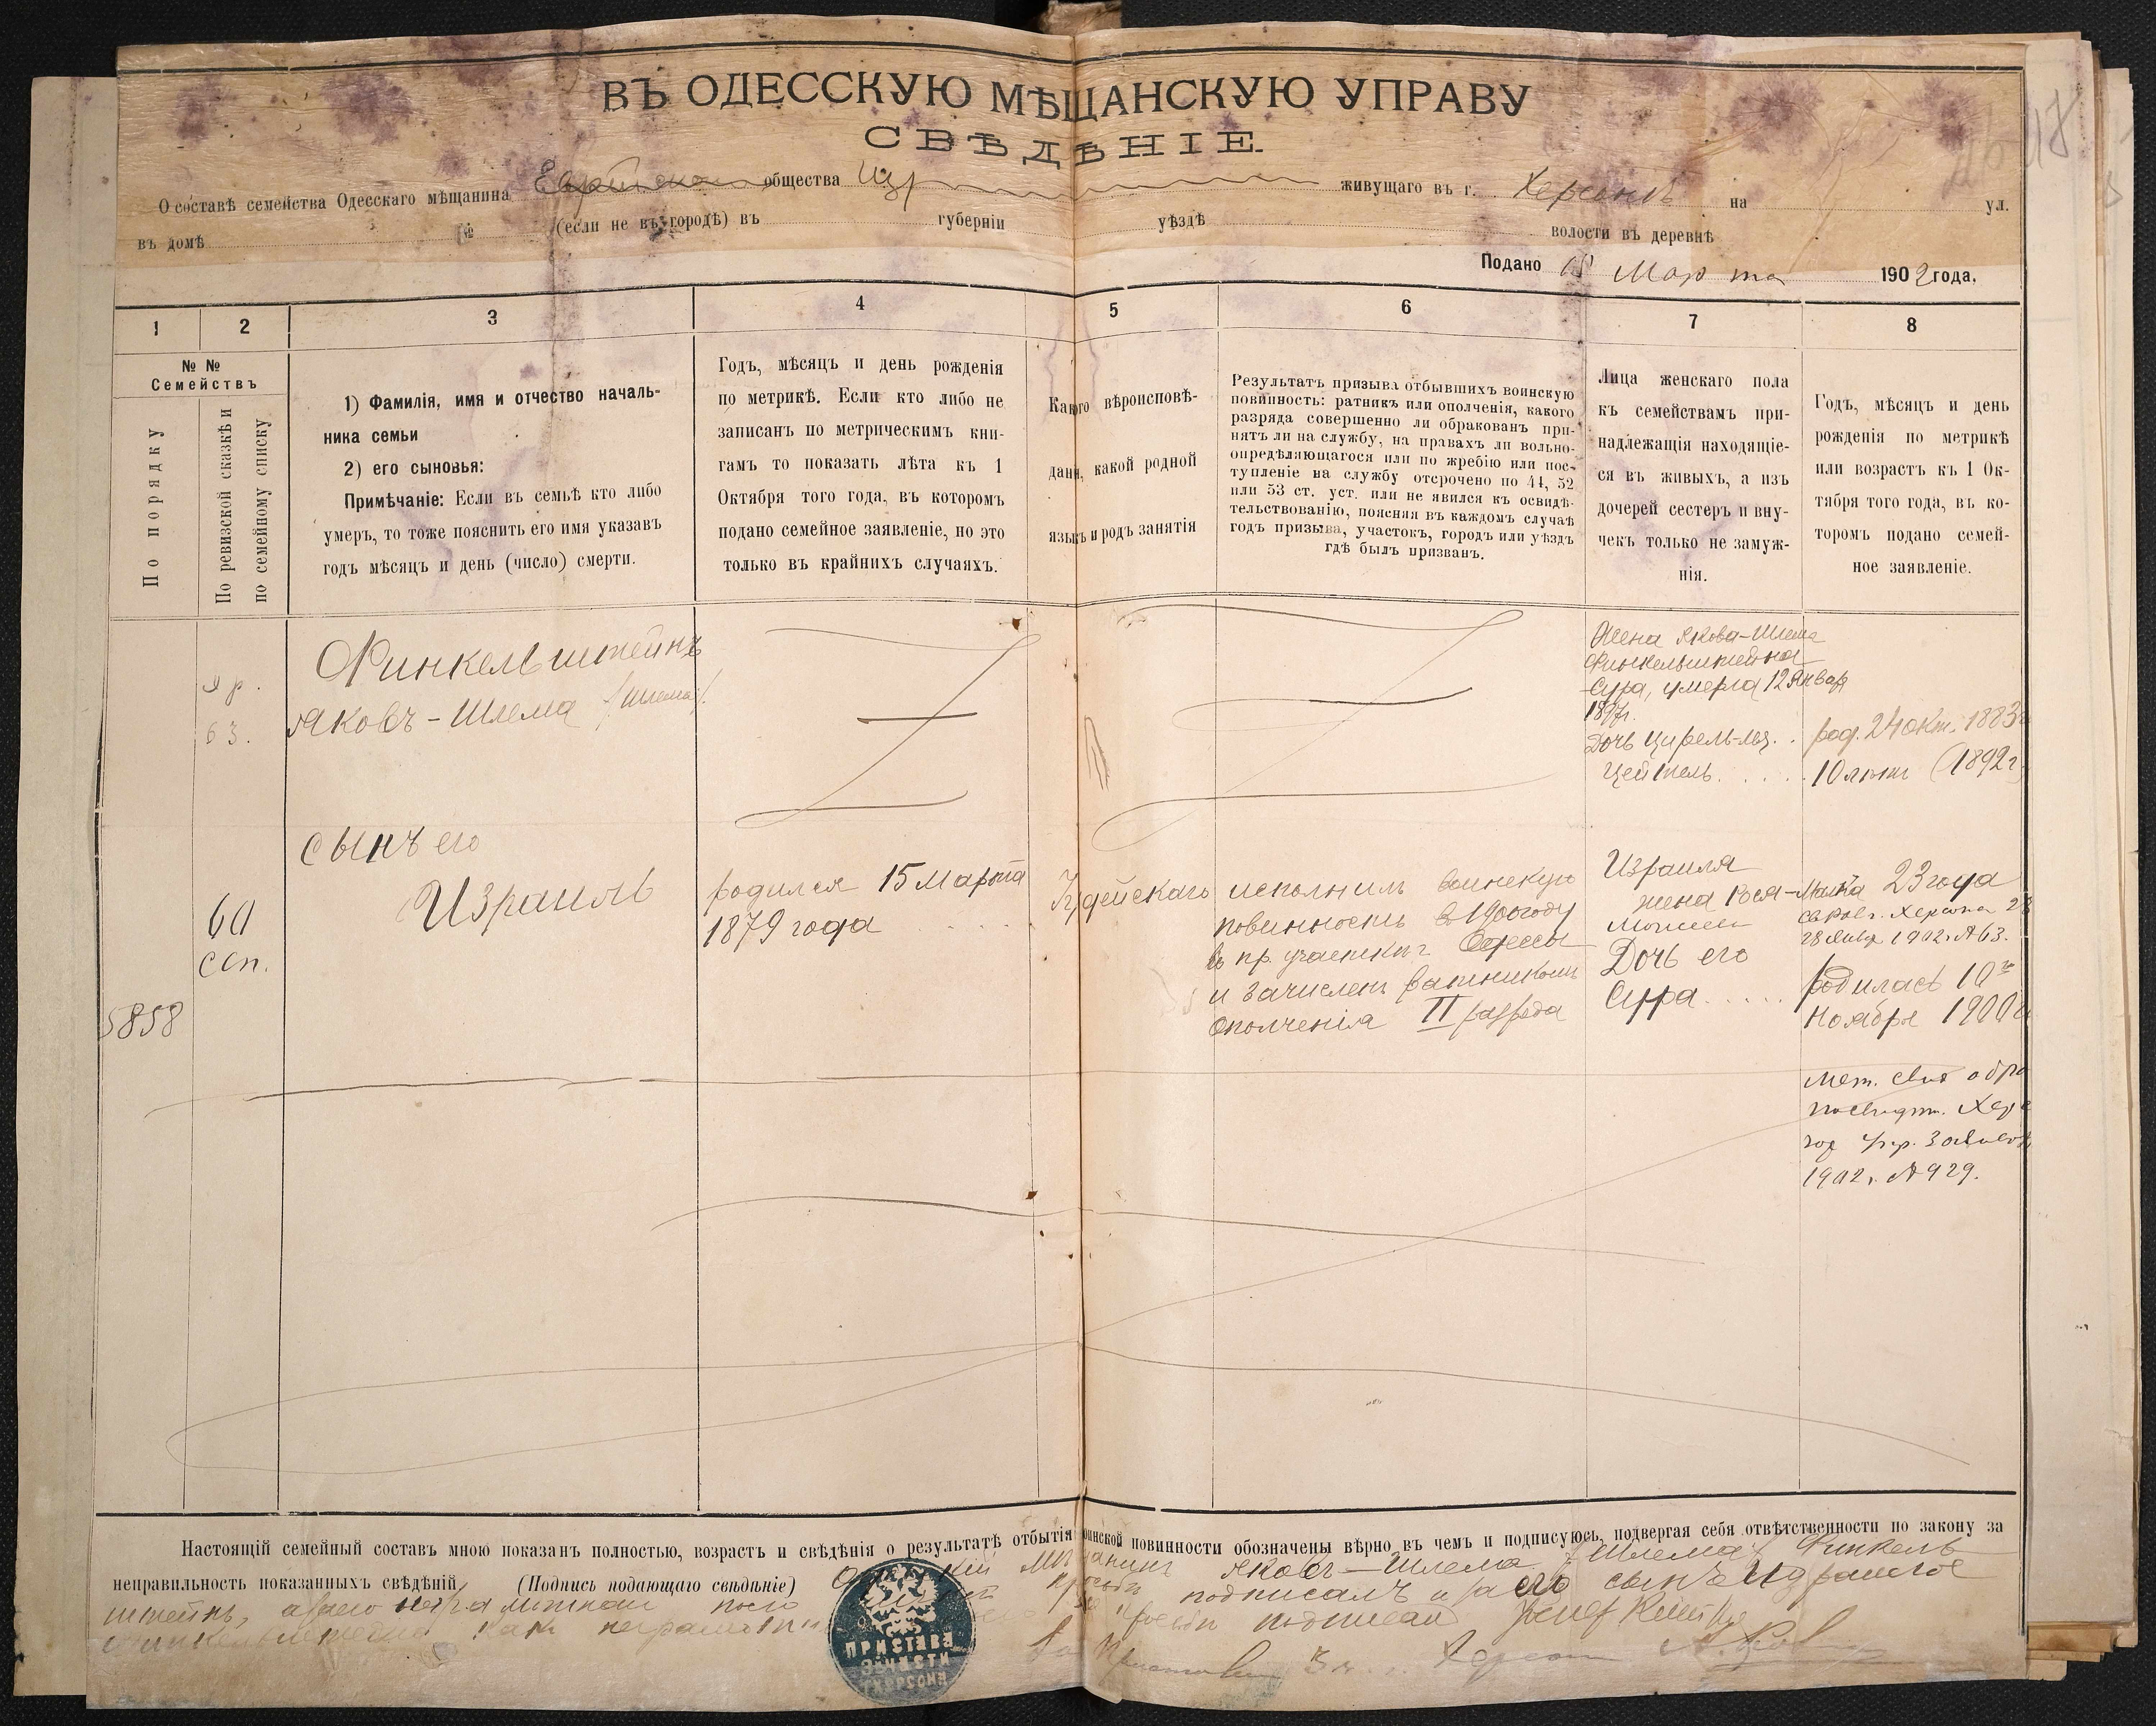 ВЪ ОДЕССКУЮ МѢЩАНСКУЮ УПРАВУ
СВѢДѢНІЕ.
О составѣ семейства Одесскаго мѣщанина общества живущаго въ г. Херсонѣ на ул.
въ домѣ № (если не въ городѣ) въ губерніи уѣздѣ волости въ деревнѣ
Подано Марта 1902 года.
1 2 3 4 5 6 7 8
№ № Семействъ
По порядку
По ревизской сказкѣ и
по семейному списку
1) Фамилія, имя и отчество началь-
ника семьи
2) его сыновья:
Примѣчаніе: Если въ семьѣ кто либо
умеръ, то тоже пояснить его имя указавъ
годъ мѣсяцъ и день (число) смерти.
Годъ, мѣсяцъ и день рожденія
по метрикѣ. Если кто либо не
записанъ по метрическимъ кни-
гамъ то показать лѣта къ 1
Октября того года, въ которомъ
подано семейное заявленіе, но это
только въ крайнихъ случаяхъ.
Какого вѣроисповѣ-
данія, какой родной
языкъ и родъ занятія
Результатъ призыва отбывшихъ воинскую
повинность: ратникъ или ополченія, какого
разряда совершенно ли обракованъ при-
нятъ ли на службу, на правахъ ли вольно-
опредѣляющагося или по жребію или пос-
тупленіе на службу отсрочено по 44, 52
или 53 ст. уст. или не явился къ освидѣ-
тельствованію, поясняя въ каждомъ случаѣ
годъ призыва, участокъ, городъ или уѣздъ
гдѣ былъ призванъ.
Лица женскаго пола
къ семействамъ при-
надлежащія находящіе-
ся въ живыхъ, а изъ
дочерей сестеръ и вну-
чекъ только не замуж-
нія.
Годъ, мѣсяцъ и день
рожденія по метрикѣ
или возрастъ къ 1 Ок-
тября того года, въ ко-
торомъ подано семей-
ное заявленіе.
63.
Финкельштейнъ
Яковъ-Шлема (Шлема).
Жена Якова-Шлема
Финкельштейна
Сура, умерла 12 Январ
1897г.
Дочь Цирель
Цейтель
род. 24 окт. 1883
10 лѣтъ (1892г
60
сем.
5858
сынъ его
Израиль
родился 15 Марта
1879 года
Іудейскаго
исполнилъ воинскую
повинность в 1900 году
въ пр. участкѣ Одессы
и зачисленъ ратникомъ
ополченія II разряда
Израиля
жена Рося-Малка 23 года
Дочь его
Сура
28 Январ 1902 г. № 63.
родилась 10го
Ноября 1900
мет. свид. о бр
Хер
1902 г. № 929.
Настоящій семейный составъ мною показанъ полностью, возрастъ и свѣдѣнія о результатѣ отбытія воинской повинности обозначены вѣрно въ чемъ и подписуюсь, подвергая себя отвѣтственности по закону за
неправильность показанныхъ свѣдѣній (Подпись подающаго свѣдѣніе) Яковъ-Шлема (Шлема) Финкель-
штейнъ, подписалъ и за его сына Израиля
подписалъ
ПРИСТАВА
ЧАСТИ
Г. ХЕРСОНА